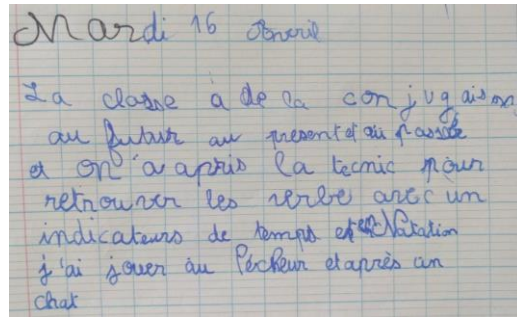 Mardi 16 Avril
La classe a de la conjugaison
au futur au présent et au passée
et on a appris la tecnic pour
retrouver les verbe avec un
indicateurs de temps et en Natation
j'ai jouer au Pécheur et après un
chat